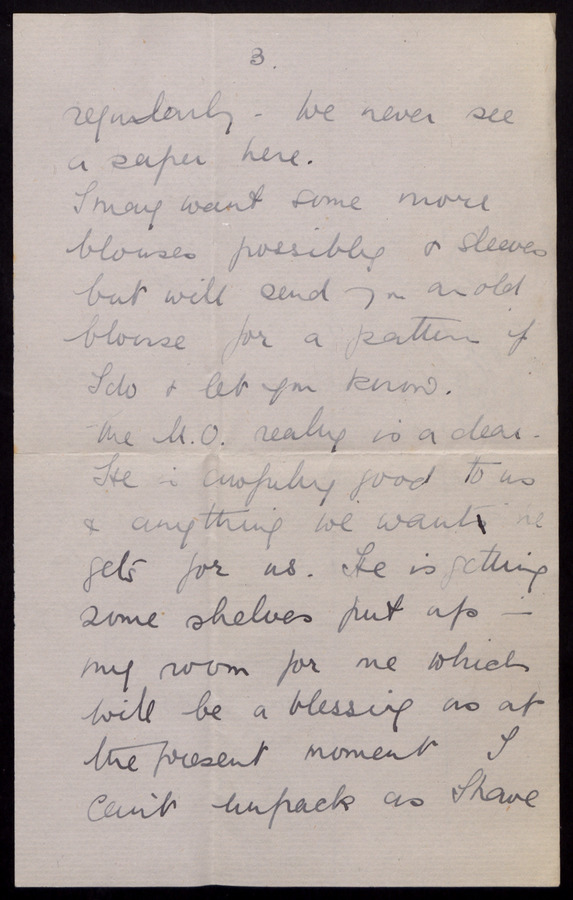 3.
regularly - We never see
a paper here.
I may want some more
blouses possibly & sleeves
but will send you an old
blouse for a pattern if
I do & let you know.
The M.O. really is a dear.
He is awfully good to us
& anything we want he
gets for us. He is getting
some shelves put up —
my room for me which
will be a blessing as at
the present moment I
can't unpack as I have